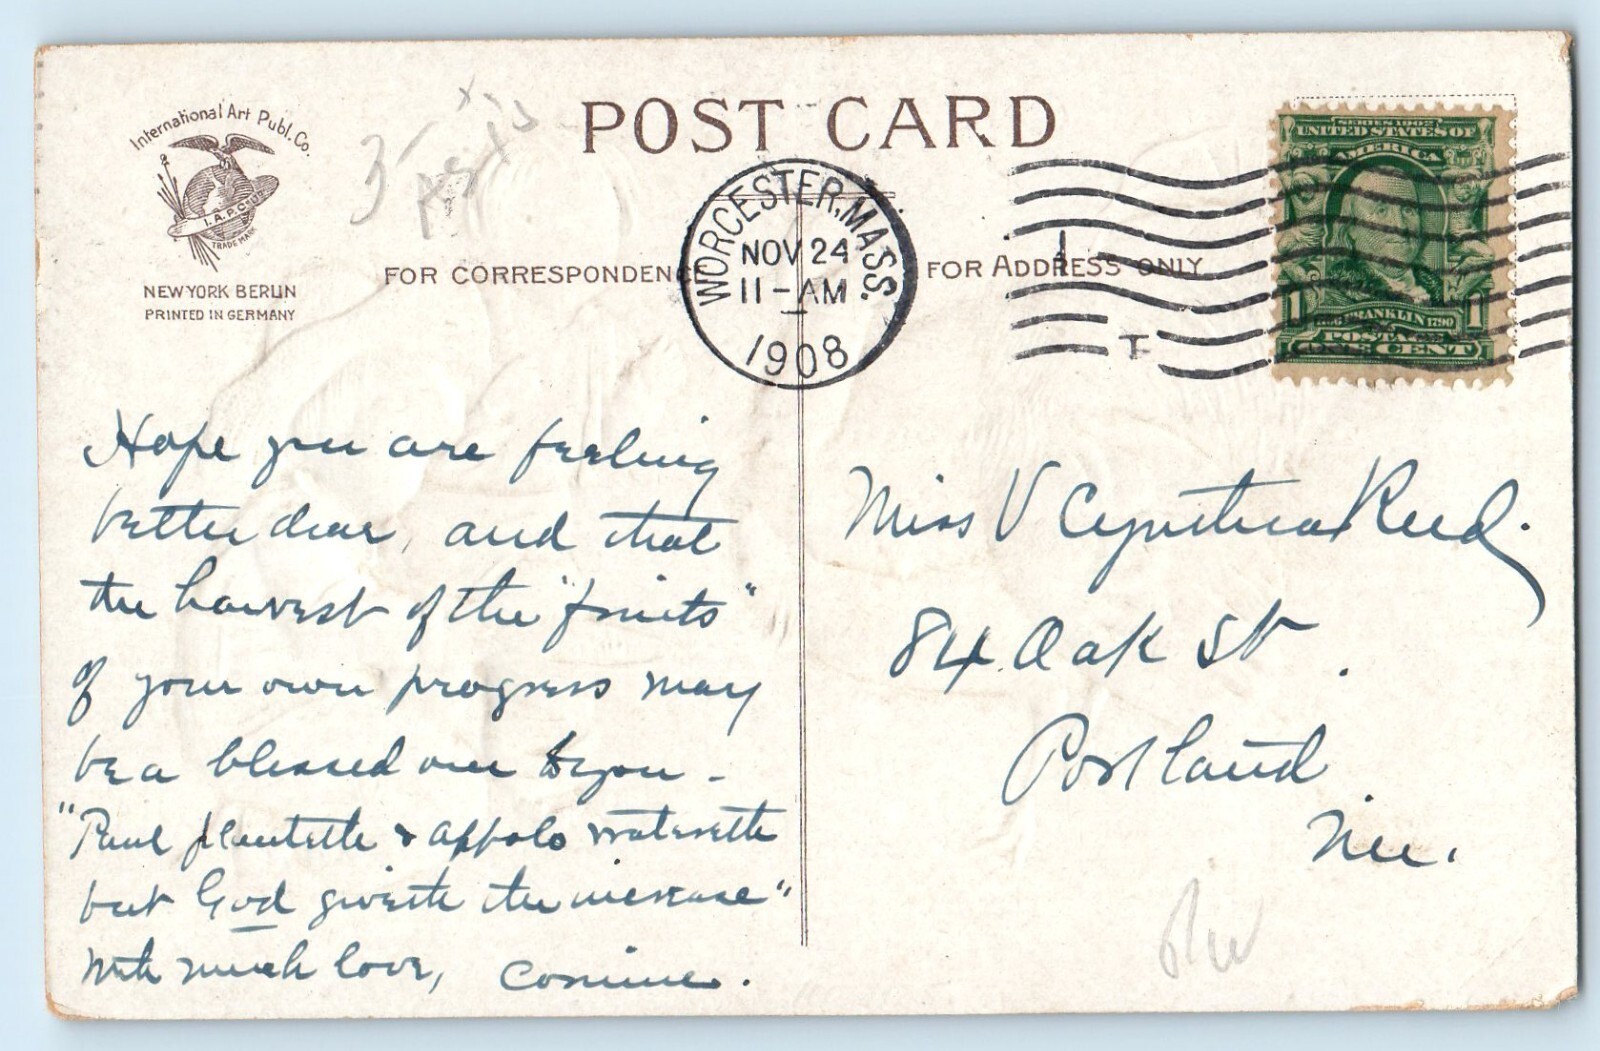 International Art Publ. Co.
I.A.P.Co.
TRADE MARK
NEW YORK BERLIN
PRINTED IN GERMANY
POST CARD
FOR CORRESPONDENCE
FOR ADDRESS ONLY
WORCESTER, MASS.
NOV 24
11-AM
1908
SERIES 1902
UNITED STATES OF
AMERICA
FRANKLIN 1790
1 1
POSTAGE
ONE CENT
Hope you are feeling
better dear, and that
the harvest of the "fruits"
of your own progress may
be a blessed one to you -
"Paul planteth & appolo watereth
but God giveth the increase"
With much love,
Miss V Cynthia Reed.
84 Oak St.
Portland
Me.